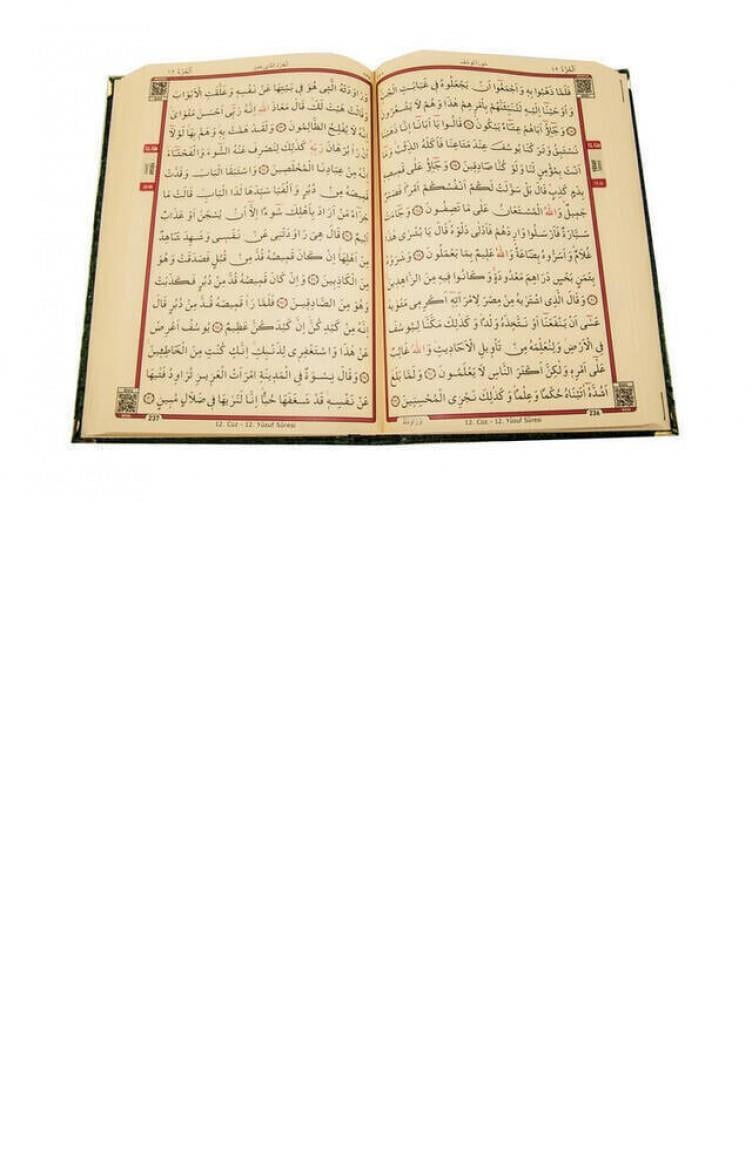 الجزء ١٢
سورة يوسف
فَلَمَّا ذَهَبُوا بِهِ وَاَجْمَعُٓوا اَنْ يَجْعَلُوهُ فِي غَيَابَتِ الْجُبِّ
وَاَوْحَيْنَٓا اِلَيْهِ لَتُنَبِّئَنَّهُمْ بِاَمْرِهِمْ هٰذَا وَهُمْ لَا يَشْعُرُونَ
وَجَٓاؤُٓ اَبَاهُمْ عِشَٓاءً يَبْكُونَ قَالُوا يَٓا اَبَانَٓا اِنَّا ذَهَبْنَا
نَسْتَبِقُ وَتَرَكْنَا يُوسُفَ عِنْدَ مَتَاعِنَا فَاَكَلَهُ الذِّئْبُ وَمَٓا
اَنْتَ بِمُؤْمِنٍ لَنَا وَلَوْ كُنَّا صَادِقِينَ وَجَٓاؤُ عَلٰى قَمِيصِهِ
بِدَمٍ كَذِبٍ قَالَ بَلْ سَوَّلَتْ لَكُمْ اَنْفُسُكُمْ اَمْرًا فَصَبْرٌ
جَمِيلٌ وَاللّٰهُ الْمُسْتَعَانُ عَلٰى مَا تَصِفُونَ وَجَٓاءَتْ
سَيَّارَةٌ فَاَرْسَلُوا وَارِدَهُمْ فَاَدْلٰى دَلْوَهُ قَالَ يَا بُشْرٰى هٰذَا
غُلَامٌ وَاَسَرُّوهُ بِضَاعَةً وَاللّٰهُ عَلِيمٌ بِمَا يَعْمَلُونَ وَشَرَوْهُ
بِثَمَنٍ بَخْسٍ دَرَاهِمَ مَعْدُودَةٍ وَكَانُوا فِيهِ مِنَ الزَّاهِدِينَ
وَقَالَ الَّذِي اشْتَرٰيهُ مِنْ مِصْرَ لِامْرَاَتِهِٓ اَكْرِمِي مَثْوٰيهُ
عَسٰٓى اَنْ يَنْفَعَنَٓا اَوْ نَتَّخِذَهُ وَلَدًا وَكَذٰلِكَ مَكَّنَّا لِيُوسُفَ
فِي الْاَرْضِ وَلِنُعَلِّمَهُ مِنْ تَأْوِيلِ الْاَحَادِيثِ وَاللّٰهُ غَالِبٌ
عَلٰٓى اَمْرِهِ وَلٰكِنَّ اَكْثَرَ النَّاسِ لَا يَعْلَمُونَ وَلَمَّا بَلَغَ
اَشُدَّهُٓ اٰتَيْنَاهُ حُكْمًا وَعِلْمًا وَكَذٰلِكَ نَجْزِي الْمُحْسِنِينَ
236
12. Cüz - 12. Yûsuf Sûresi
وَرَاوَدَتْهُ
الجزء الثاني عشر
الجزء ١٢
وَرَاوَدَتْهُ الَّتِي هُوَ فِي بَيْتِهَا عَنْ نَفْسِهِ وَغَلَّقَتِ الْاَبْوَابَ
وَقَالَتْ هَيْتَ لَكَ قَالَ مَعَاذَ اللّٰهِ اِنَّهُ رَبِّٓي اَحْسَنَ مَثْوَايَ
اِنَّهُ لَا يُفْلِحُ الظَّالِمُونَ وَلَقَدْ هَمَّتْ بِهِ وَهَمَّ بِهَا لَوْلَٓا
اَنْ رَاٰ بُرْهَانَ رَبِّهِ كَذٰلِكَ لِنَصْرِفَ عَنْهُ السُّٓوءَ وَالْفَحْشَٓاءَ
اِنَّهُ مِنْ عِبَادِنَا الْمُخْلَصِينَ وَاسْتَبَقَا الْبَابَ وَقَدَّتْ
قَمِيصَهُ مِنْ دُبُرٍ وَاَلْفَيَا سَيِّدَهَا لَدَا الْبَابِ قَالَتْ مَا
جَزَٓاءُ مَنْ اَرَادَ بِاَهْلِكَ سُٓوءًا اِلَّٓا اَنْ يُسْجَنَ اَوْ عَذَابٌ
اَلِيمٌ قَالَ هِيَ رَاوَدَتْنِي عَنْ نَفْسِي وَشَهِدَ شَاهِدٌ
مِنْ اَهْلِهَا اِنْ كَانَ قَمِيصُهُ قُدَّ مِنْ قُبُلٍ فَصَدَقَتْ وَهُوَ
مِنَ الْكَاذِبِينَ وَاِنْ كَانَ قَمِيصُهُ قُدَّ مِنْ دُبُرٍ فَكَذَبَتْ
وَهُوَ مِنَ الصَّادِقِينَ فَلَمَّا رَاٰ قَمِيصَهُ قُدَّ مِنْ دُبُرٍ قَالَ
اِنَّهُ مِنْ كَيْدِكُنَّ اِنَّ كَيْدَكُنَّ عَظِيمٌ يُوسُفُ اَعْرِضْ
عَنْ هٰذَا وَاسْتَغْفِرِي لِذَنْبِكِ اِنَّكِ كُنْتِ مِنَ الْخَاطِئِينَ
وَقَالَ نِسْوَةٌ فِي الْمَدِينَةِ امْرَاَتُ الْعَزِيزِ تُرَاوِدُ فَتٰيهَا
عَنْ نَفْسِهِ قَدْ شَغَفَهَا حُبًّا اِنَّا لَنَرٰيهَا فِي ضَلَالٍ مُبِينٍ
237
12. Cüz - 12. Yûsuf Sûresi